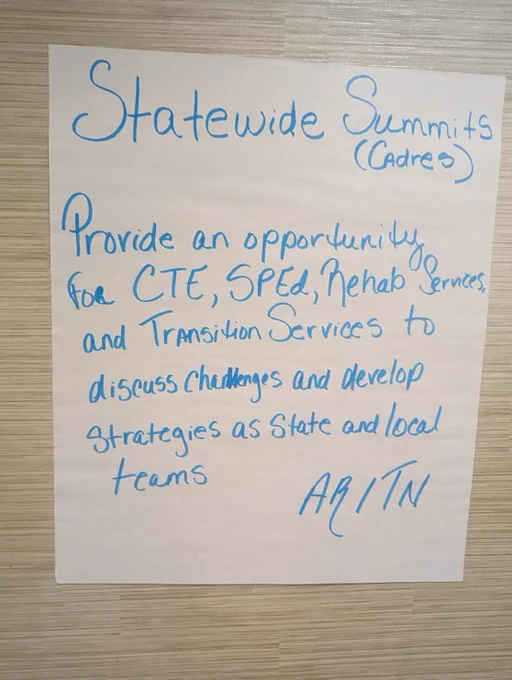 Statewide Summits
(Cadres)
Provide an opportunity
for CTE, SPEd, Rehab Services,
and Transition Services to
discuss challenges and develop
strategies as State and local
teams
AR/TN